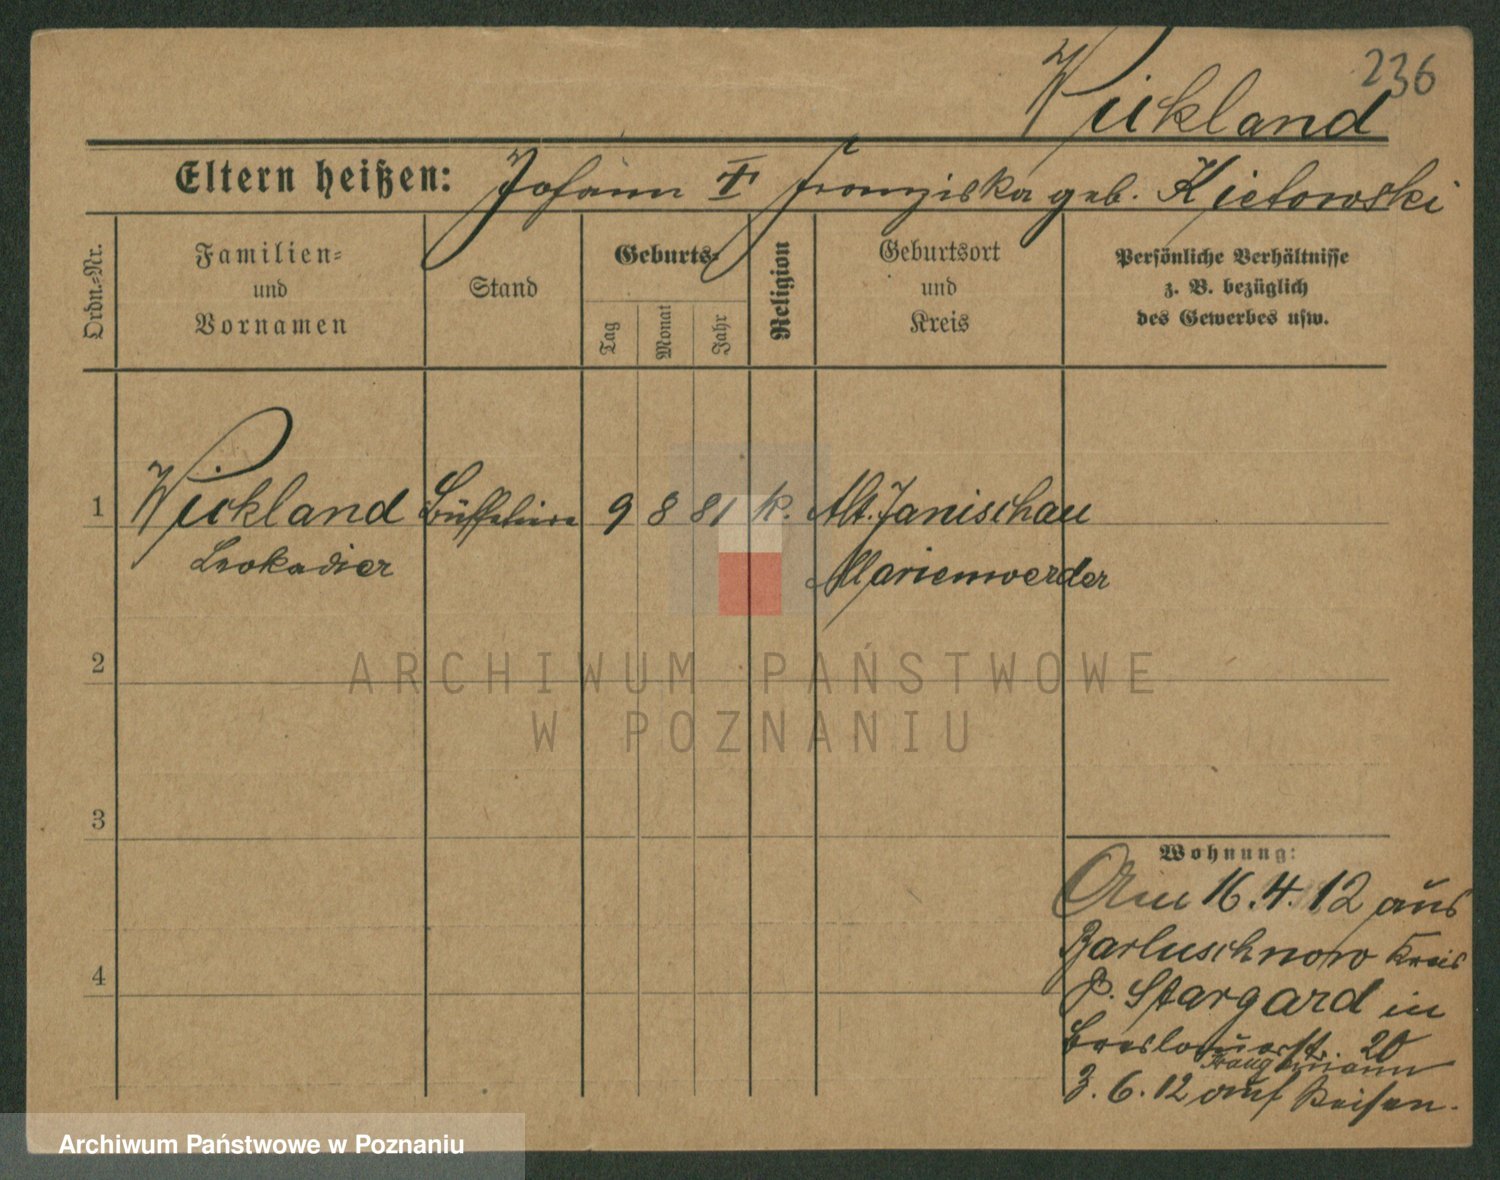 236
Wickland
Eltern heißen: Johann † Franziska geb. Kietowski
Ordn.-Nr.
Familien-
und
Vornamen
Stand
Geburts-
Tag
Monat
Jahr
Religion
Geburtsort
und
Kreis
Persönliche Verhältnisse
z. B. bezüglich
des Gewerbes usw.
1 Wickland 9 8 81 k. Alt. Janischau
Leokadier Marienwerder
2
3
4
Wohnung:
Am 16.4.12 aus
Barluschnow Kreis
P. Stargard in
Breslauerstr. 20
3.6.12 auf Reisen.
ARCHIWUM PAŃSTWOWE
W POZNANIU
Archiwum Państwowe w Poznaniu